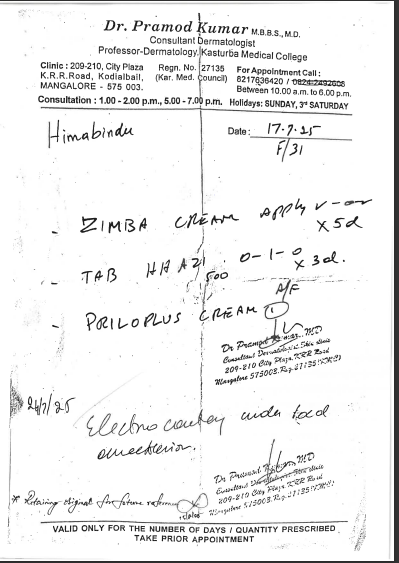 Dr. Pramod Kumar M.B.B.S., M.D.
Consultant Dermatologist
Professor-Dermatology, Kasturba Medical College
Clinic : 209-210, City Plaza
K.R.R.Road, Kodialbail,
MANGALORE - 575 003.
Regn. No. 27135
(Kar. Med. Council)
For Appointment Call :
8217636420 / 0824-2492608
Between 10.00 a.m. to 6.00 p.m.
Consultation : 1.00 - 2.00 p.m., 5.00 - 7.00 p.m. Holidays: SUNDAY, 3rd SATURDAY
Himabindu
Date: 17.7.25
F/31
- ZIMBA CREAM Apply
x 5d
- TAB HHAZI 500 0-1-0
x 3d.
A/F
- PRILOPLUS CREAM 1
Dr Pramod Kumar, MD
Consultant Dermatologist
209-210 City Plaza, KRR Road
Mangalore 575003. Reg. 27135 (KMC)
24/7/25
Electro cautery under local
Dr Pramod Kumar, MD
Consultant
209-210 City Plaza, KRR Road
Mangalore 575003. Reg. 27135 (KMC)
* Retaining original for future reference
VALID ONLY FOR THE NUMBER OF DAYS / QUANTITY PRESCRIBED
TAKE PRIOR APPOINTMENT